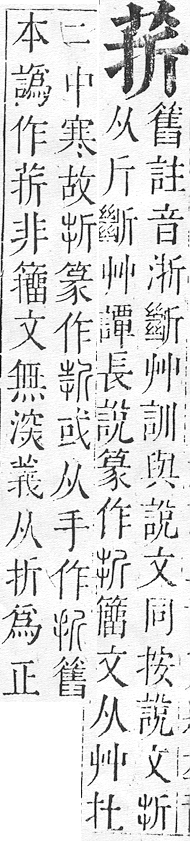 䓆
舊註音浙斷艸訓與說文同按說文㪿
从斤斷艸譚長說篆作㪿籀文从艸扗
二中寒故㪿篆作㪿或从手作折舊
本譌作䓆非籀文無深義从折爲正